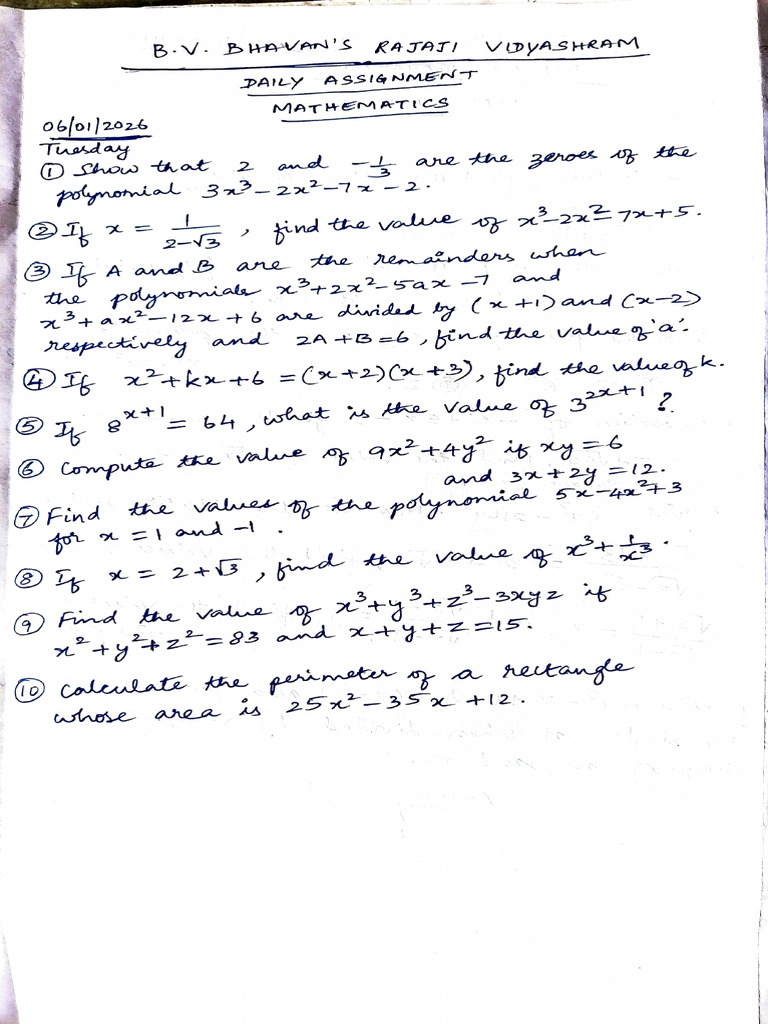 B.V. BHAVAN'S RAJAJI VIDYASHRAM
DAILY ASSIGNMENT
MATHEMATICS
06/01/2026
Tuesday
① Show that 2 and -1/3 are the zeroes of the
polynomial 3x³-2x²-7x-2.
② If x = 1/(2-√3), find the value of x³-2x²-7x+5.
③ If A and B are the remainders when
the polynomials x³+2x²-5ax-7 and
x³+ax²-12x+6 are divided by (x+1) and (x-2)
respectively and 2A+B=6, find the value of 'a'.
④ If x²+kx+6 = (x+2)(x+3), find the value of k.
⑤ If 8^(x+1) = 64, what is the value of 3^(2x+1)?
⑥ Compute the value of 9x²+4y² if xy=6
and 3x+2y=12.
⑦ Find the values of the polynomial 5x-4x²+3
for x=1 and -1.
⑧ If x = 2+√3, find the value of x³+1/x³.
⑨ Find the value of x³+y³+z³-3xyz if
x²+y²+z²=83 and x+y+z=15.
⑩ Calculate the perimeter of a rectangle
whose area is 25x²-35x+12.